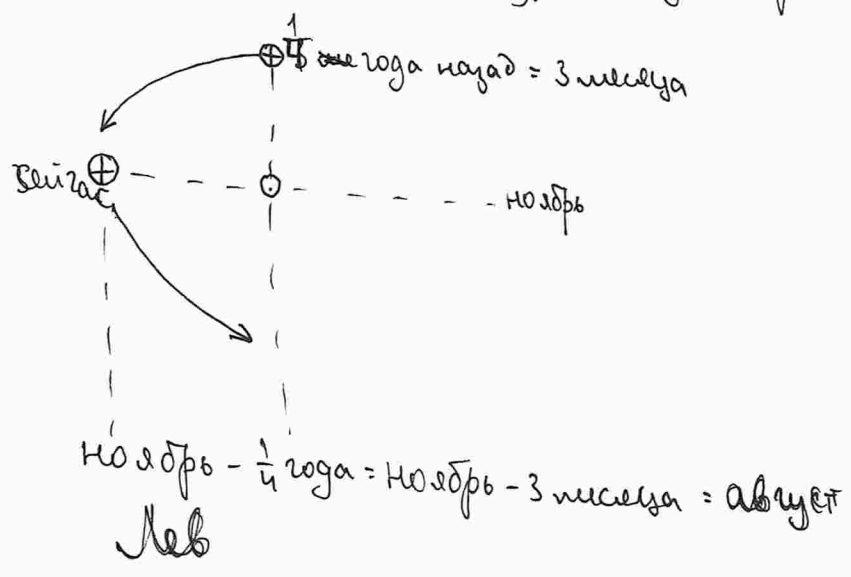 1/4 года назад = 3 месяца
сейчас
ноябрь
ноябрь - 1/4 года = ноябрь - 3 месяца = август
Лев